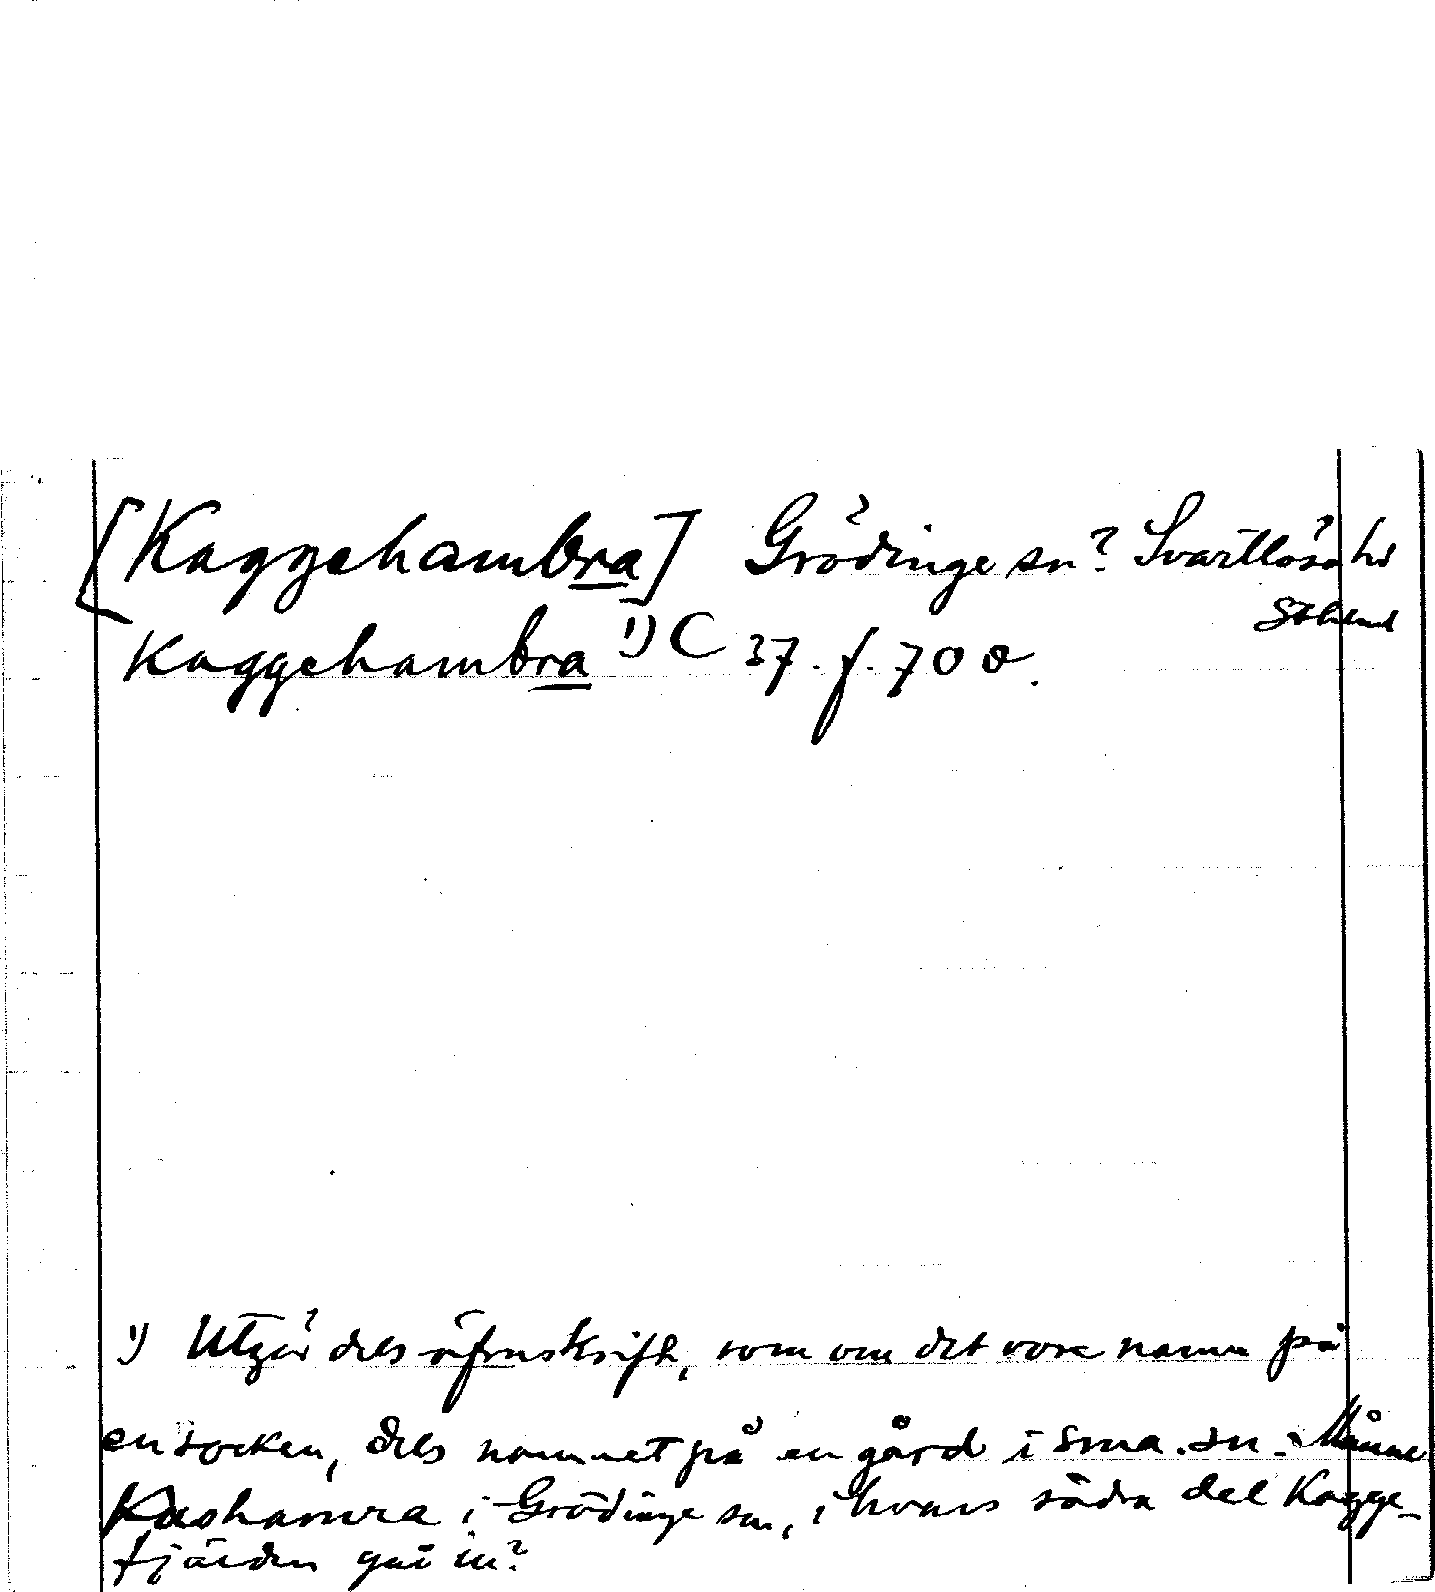 [Kaggehambra] Grödinge sn? Svartlösa hd
Södml
Kaggehambra ¹) C 37. f. 700.
¹) Utgör dels öfverskrift, som om det vore namn på
en socken, dels namnet på en gård i sma. sn. Månne
Kashamra i Grödinge sn, i hvars södra del Kagge-
fjärden går in?